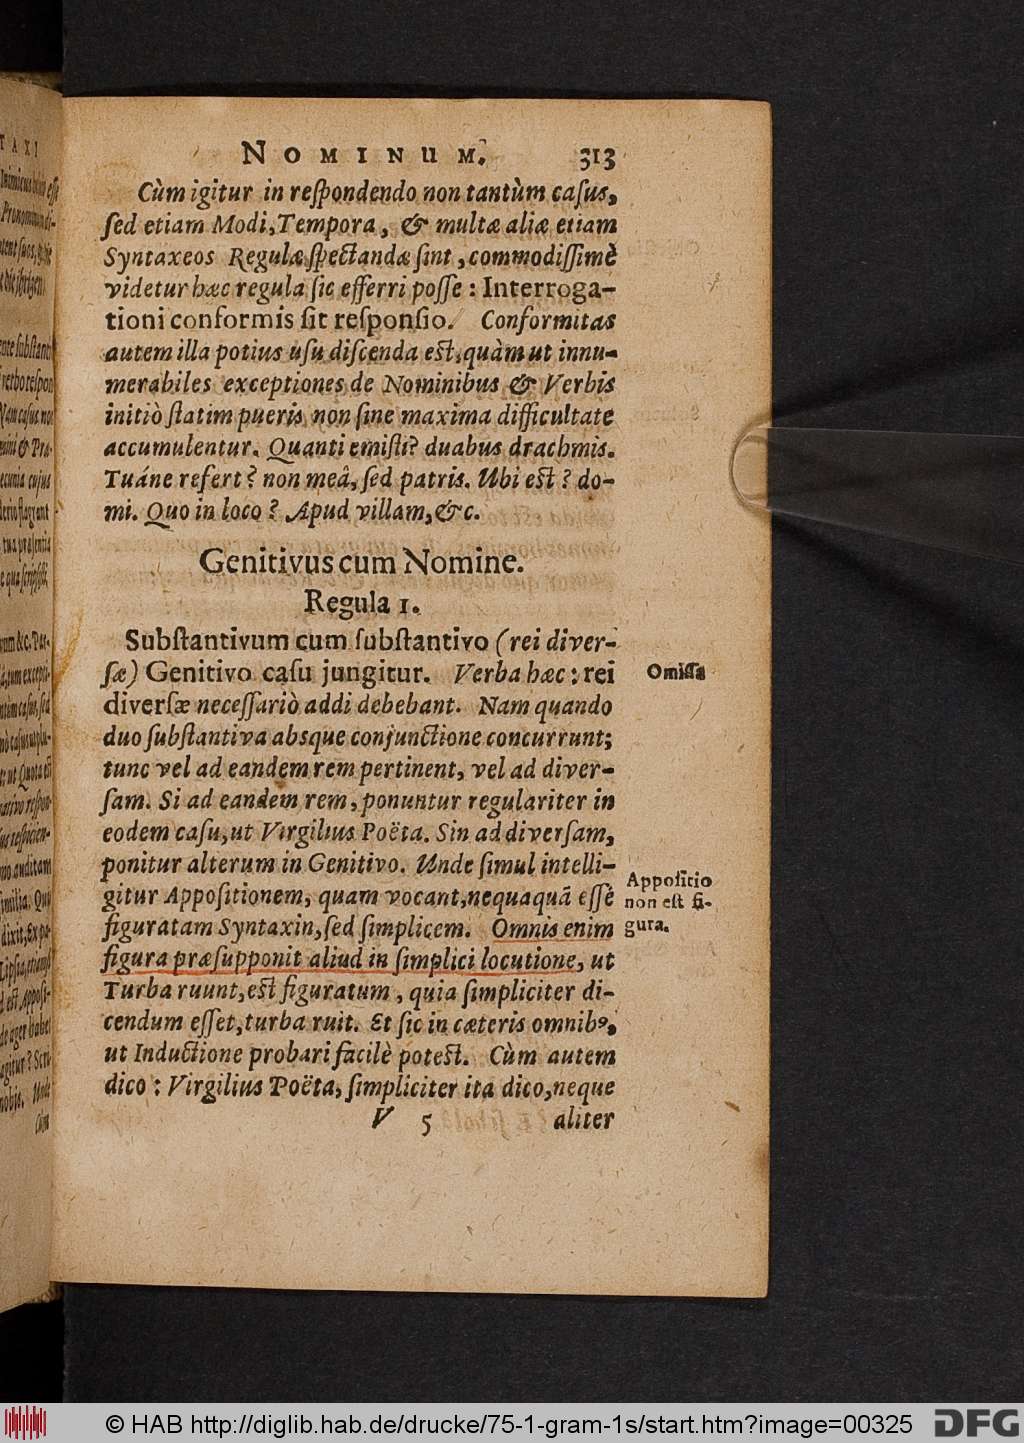 NOMINUM. 313
Cùm igitur in reſpondendo non tantùm caſus,
ſed etiam Modi, Tempora, & multæ aliæ etiam
Syntaxeos Regulæ ſpectandæ ſint, commodiſſimè
videtur hæc regula ſic efferri poſſe: Interroga-
tioni conformis ſit reſponſio. Conformitas
autem illa potius uſu diſcenda eſt, quàm ut innu-
merabiles exceptiones de Nominibus & Verbis
initiò ſtatim pueris non ſine maxima difficultate
accumulentur. Quanti emiſti? duabus drachmis.
Tuáne refert? non meâ, ſed patris. Ubi eſt? do-
mi. Quo in loco? Apud villam, &c.
Genitivus cum Nomine.
Regula 1.
Subſtantivum cum ſubſtantivo (rei diver-
ſæ) Genitivo caſu jungitur. Verba hæc: rei
Omiſſa
diverſæ neceſſariò addi debebant. Nam quando
duo ſubſtantiva absque conjunctione concurrunt;
tunc vel ad eandem rem pertinent, vel ad diver-
ſam. Si ad eandem rem, ponuntur regulariter in
eodem caſu, ut Virgilius Poëta. Sin ad diverſam,
ponitur alterum in Genitivo. Unde ſimul intelli-
gitur Appoſitionem, quam vocant, nequaquã eſſe
figuratam Syntaxin, ſed ſimplicem. Omnis enim
Appoſitio
non eſt fi-
gura.
figura præſupponit aliud in ſimplici locutione, ut
Turba ruunt, eſt figuratum, quia ſimpliciter di-
cendum eſſet, turba ruit. Et ſic in cæteris omnibꝰ,
ut Inductione probari facilè poteſt. Cùm autem
dico: Virgilius Poëta, ſimpliciter ita dico, neque
V 5 aliter
© HAB http://diglib.hab.de/drucke/75-1-gram-1s/start.htm?image=00325
DFG